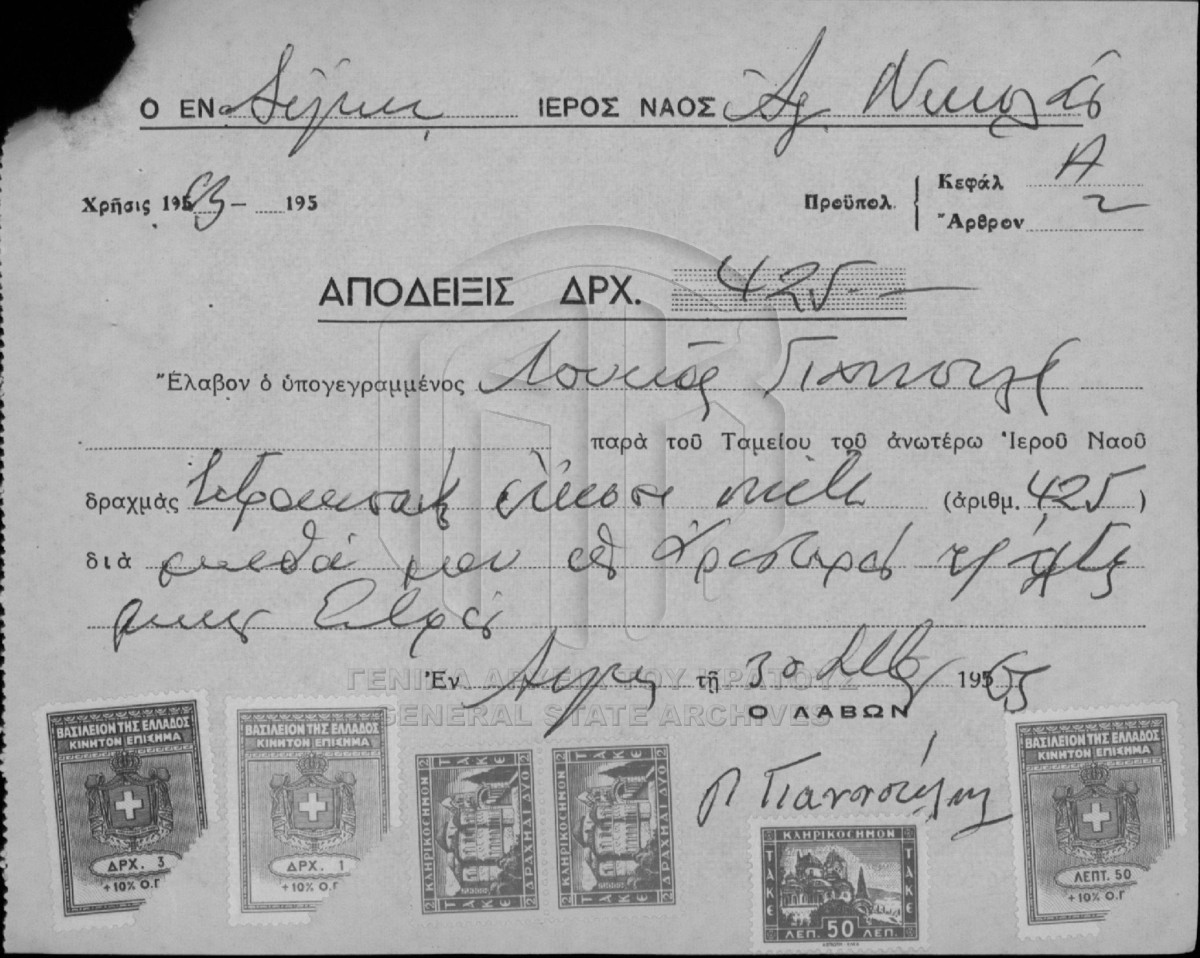 Ο ΕΝ Αίγίνῃ ΙΕΡΟΣ ΝΑΟΣ Ἁγ. Νικολάου
Χρῆσις 195 63 – 195
Προϋπολ. Κεφάλ Α
Ἄρθρον 2
ΑΠΟΔΕΙΞΙΣ ΔΡΧ. 425.-
Ἔλαβον ὁ ὑπογεγραμμένος
παρὰ τοῦ Ταμείου τοῦ ἀνωτέρω Ἱεροῦ Ναοῦ
δραχμὰς τετρακοσίας εἴκοσι πέντε (ἀριθμ. 425)
διὰ μισθό μου ὡς Ἀριστεροῦ
μηνὸς
Ἐν Αἰγίνῃ τῇ 30 195 63
Ο ΛΑΒΩΝ
ΓΕΝΙΚΑ ΑΡΧΕΙΑ ΤΟΥ ΚΡΑΤΟΥΣ
GENERAL STATE ARCHIVES
ΒΑΣΙΛΕΙΟΝ ΤΗΣ ΕΛΛΑΔΟΣ
ΚΙΝΗΤΟΝ ΕΠΙΣΗΜΑ
ΔΡΧ. 3
+10% Ο.Γ
ΒΑΣΙΛΕΙΟΝ ΤΗΣ ΕΛΛΑΔΟΣ
ΚΙΝΗΤΟΝ ΕΠΙΣΗΜΑ
ΔΡΧ. 1
+10% Ο.Γ
ΤΑΚΕ
2 ΚΛΗΡΙΚΟΣΗΜΟΝ 2
ΔΡΑΧΜΑΙ ΔΥΟ
ΤΑΚΕ
ΤΑΚΕ
2 ΚΛΗΡΙΚΟΣΗΜΟΝ 2
ΔΡΑΧΜΑΙ ΔΥΟ
ΤΑΚΕ
ΚΛΗΡΙΚΟΣΗΜΟΝ
ΤΑΚΕ ΤΑΚΕ
ΛΕΠ. 50 ΛΕΠ.
ΒΑΣΙΛΕΙΟΝ ΤΗΣ ΕΛΛΑΔΟΣ
ΚΙΝΗΤΟΝ ΕΠΙΣΗΜΑ
ΛΕΠΤ. 50
+10% Ο.Γ